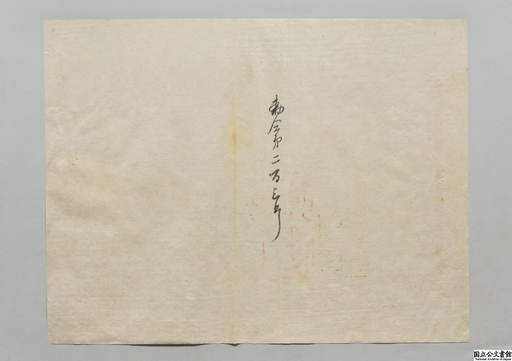 勅令第二百三号
国立公文書館
National Archives of Japan